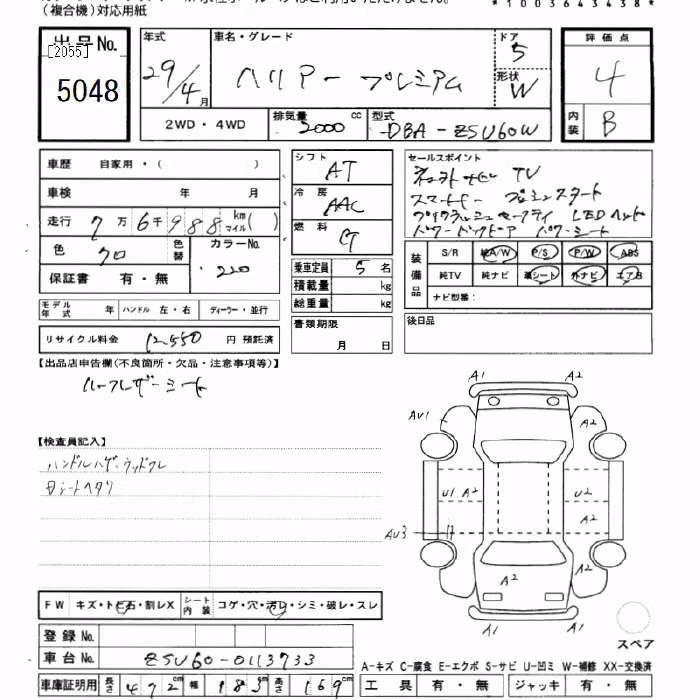 (複合機)対応用紙
*1003643438*
出品No.
[2055]
5048
年式 車名・グレード ドア
29/4月 ハリアー プレミアム 5
形状 W
2WD・4WD 排気量 2000 cc 型式 DBA-ZSU60W
評価点
4
内装 B
車歴 自家用・( )
車検 年 月
走行 7万6千988 km マイル( )
色 クロ 色替 カラーNo. 220
保証書 有・無
モデル年式 年 ハンドル 左・右 ディーラー・並行
リサイクル料金 12,550 円 預託済
シフト AT
冷房 AAC
燃料 G
乗車定員 5 名
積載量 kg
総重量 kg
書類期限
月 日
セールスポイント
TV
スタート
LEDヘッド
パワーバックドア パワーシート
装備品 S/R 純A/W P/S P/W ABS
純TV 純ナビ 革シート 外ナビ エアB
ナビ型番:
後日品
【出品店申告欄(不良箇所・欠品・注意事項等)】
ハーフレザーシート
【検査員記入】
ハンドルハゲ・ウッドスレ
Dシートヘタリ
A1 A2
AV1 A2
U1 A2 U2
AV3 A2
A2 A2
A1 A1
スペア
FW キズ・トビ石・割レX シート内装 コゲ・穴・汚レ・シミ・破レ・スレ
登録No.
車台No. ZSU60-0113733
車庫証明用 長さ 472cm 幅 183cm 高さ 169cm
A-キズ C-腐食 E-エクボ S-サビ U-凹ミ W-補修 XX-交換済
工具 有・無 ジャッキ 有・無